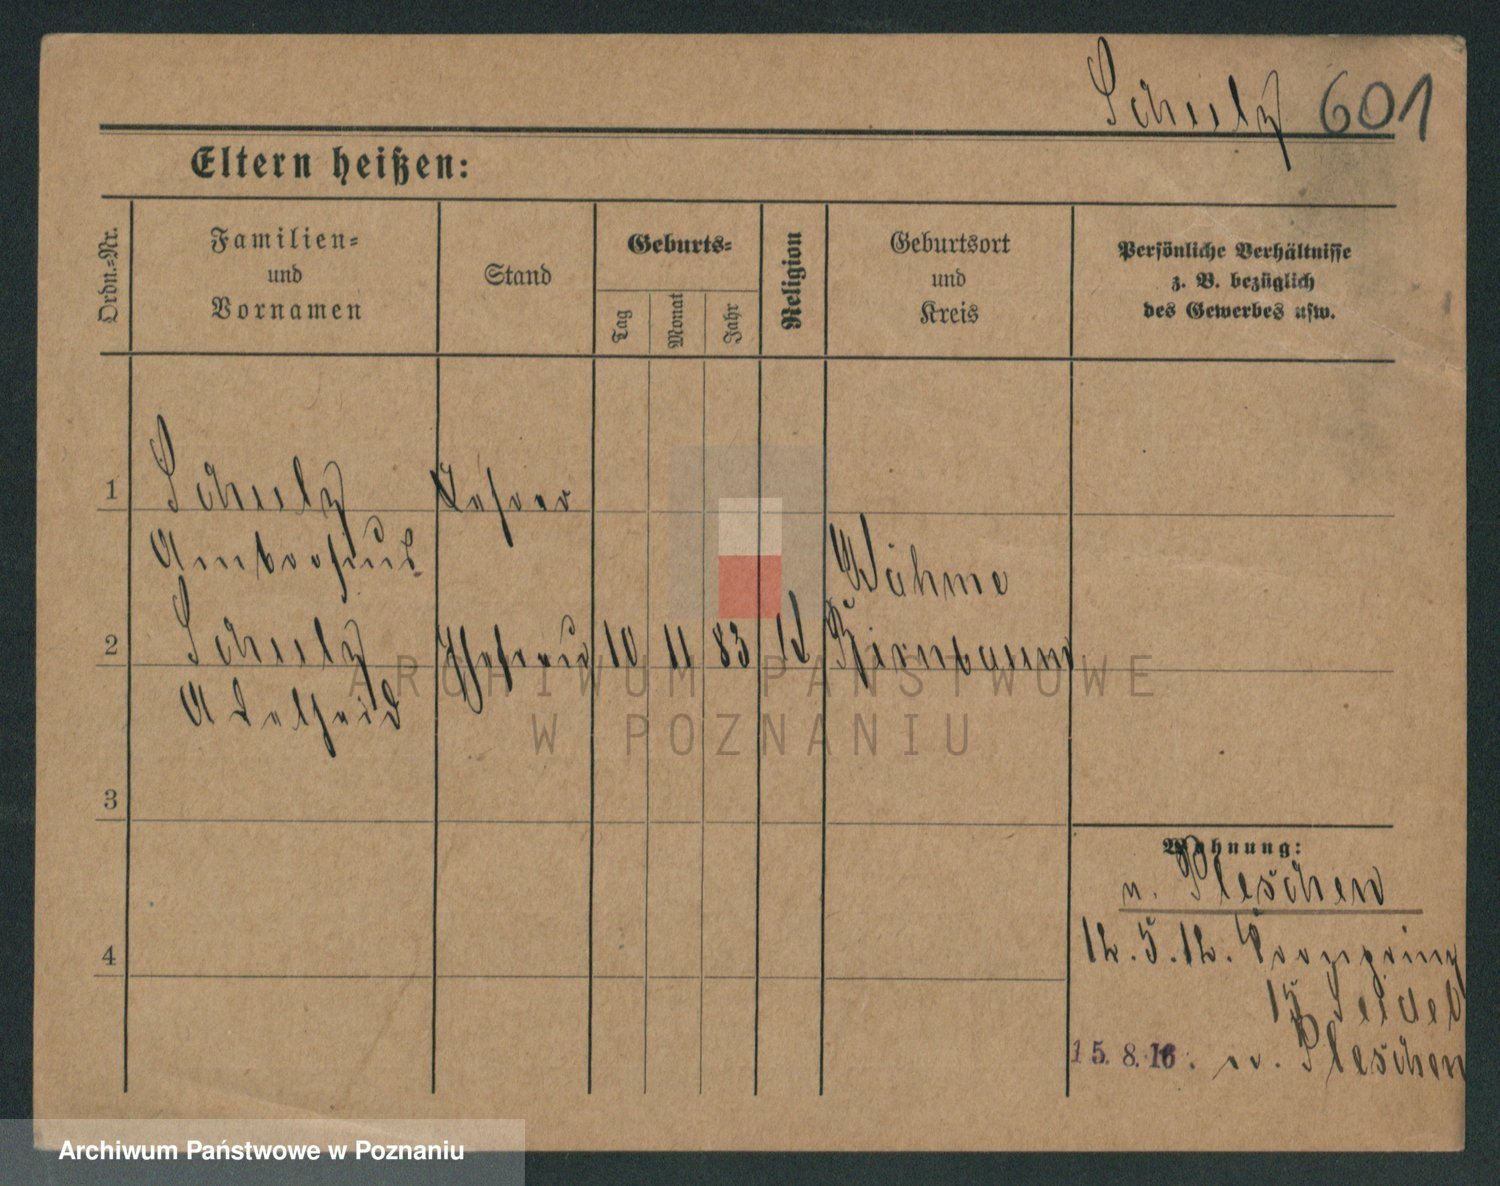 Schulz 601
Eltern heißen:
Ordn.=Nr.
Familien=
und
Vornamen
Stand
Geburts=
Tag
Monat
Jahr
Religion
Geburtsort
und
Kreis
Persönliche Verhältnisse
z. B. bezüglich
des Gewerbes usw.
1
Schulz
Lehrer
Ambrosius
2
Schulz
Ehefrau
10
11
83
Böhme
Birnbaum
Adelheid
3
4
Wohnung:
n. Pleschen
12. 5. 12. Kronprinz
15 Seidel
15. 8. 16. n. Pleschen
ARCHIWUM PAŃSTWOWE
W POZNANIU
Archiwum Państwowe w Poznaniu